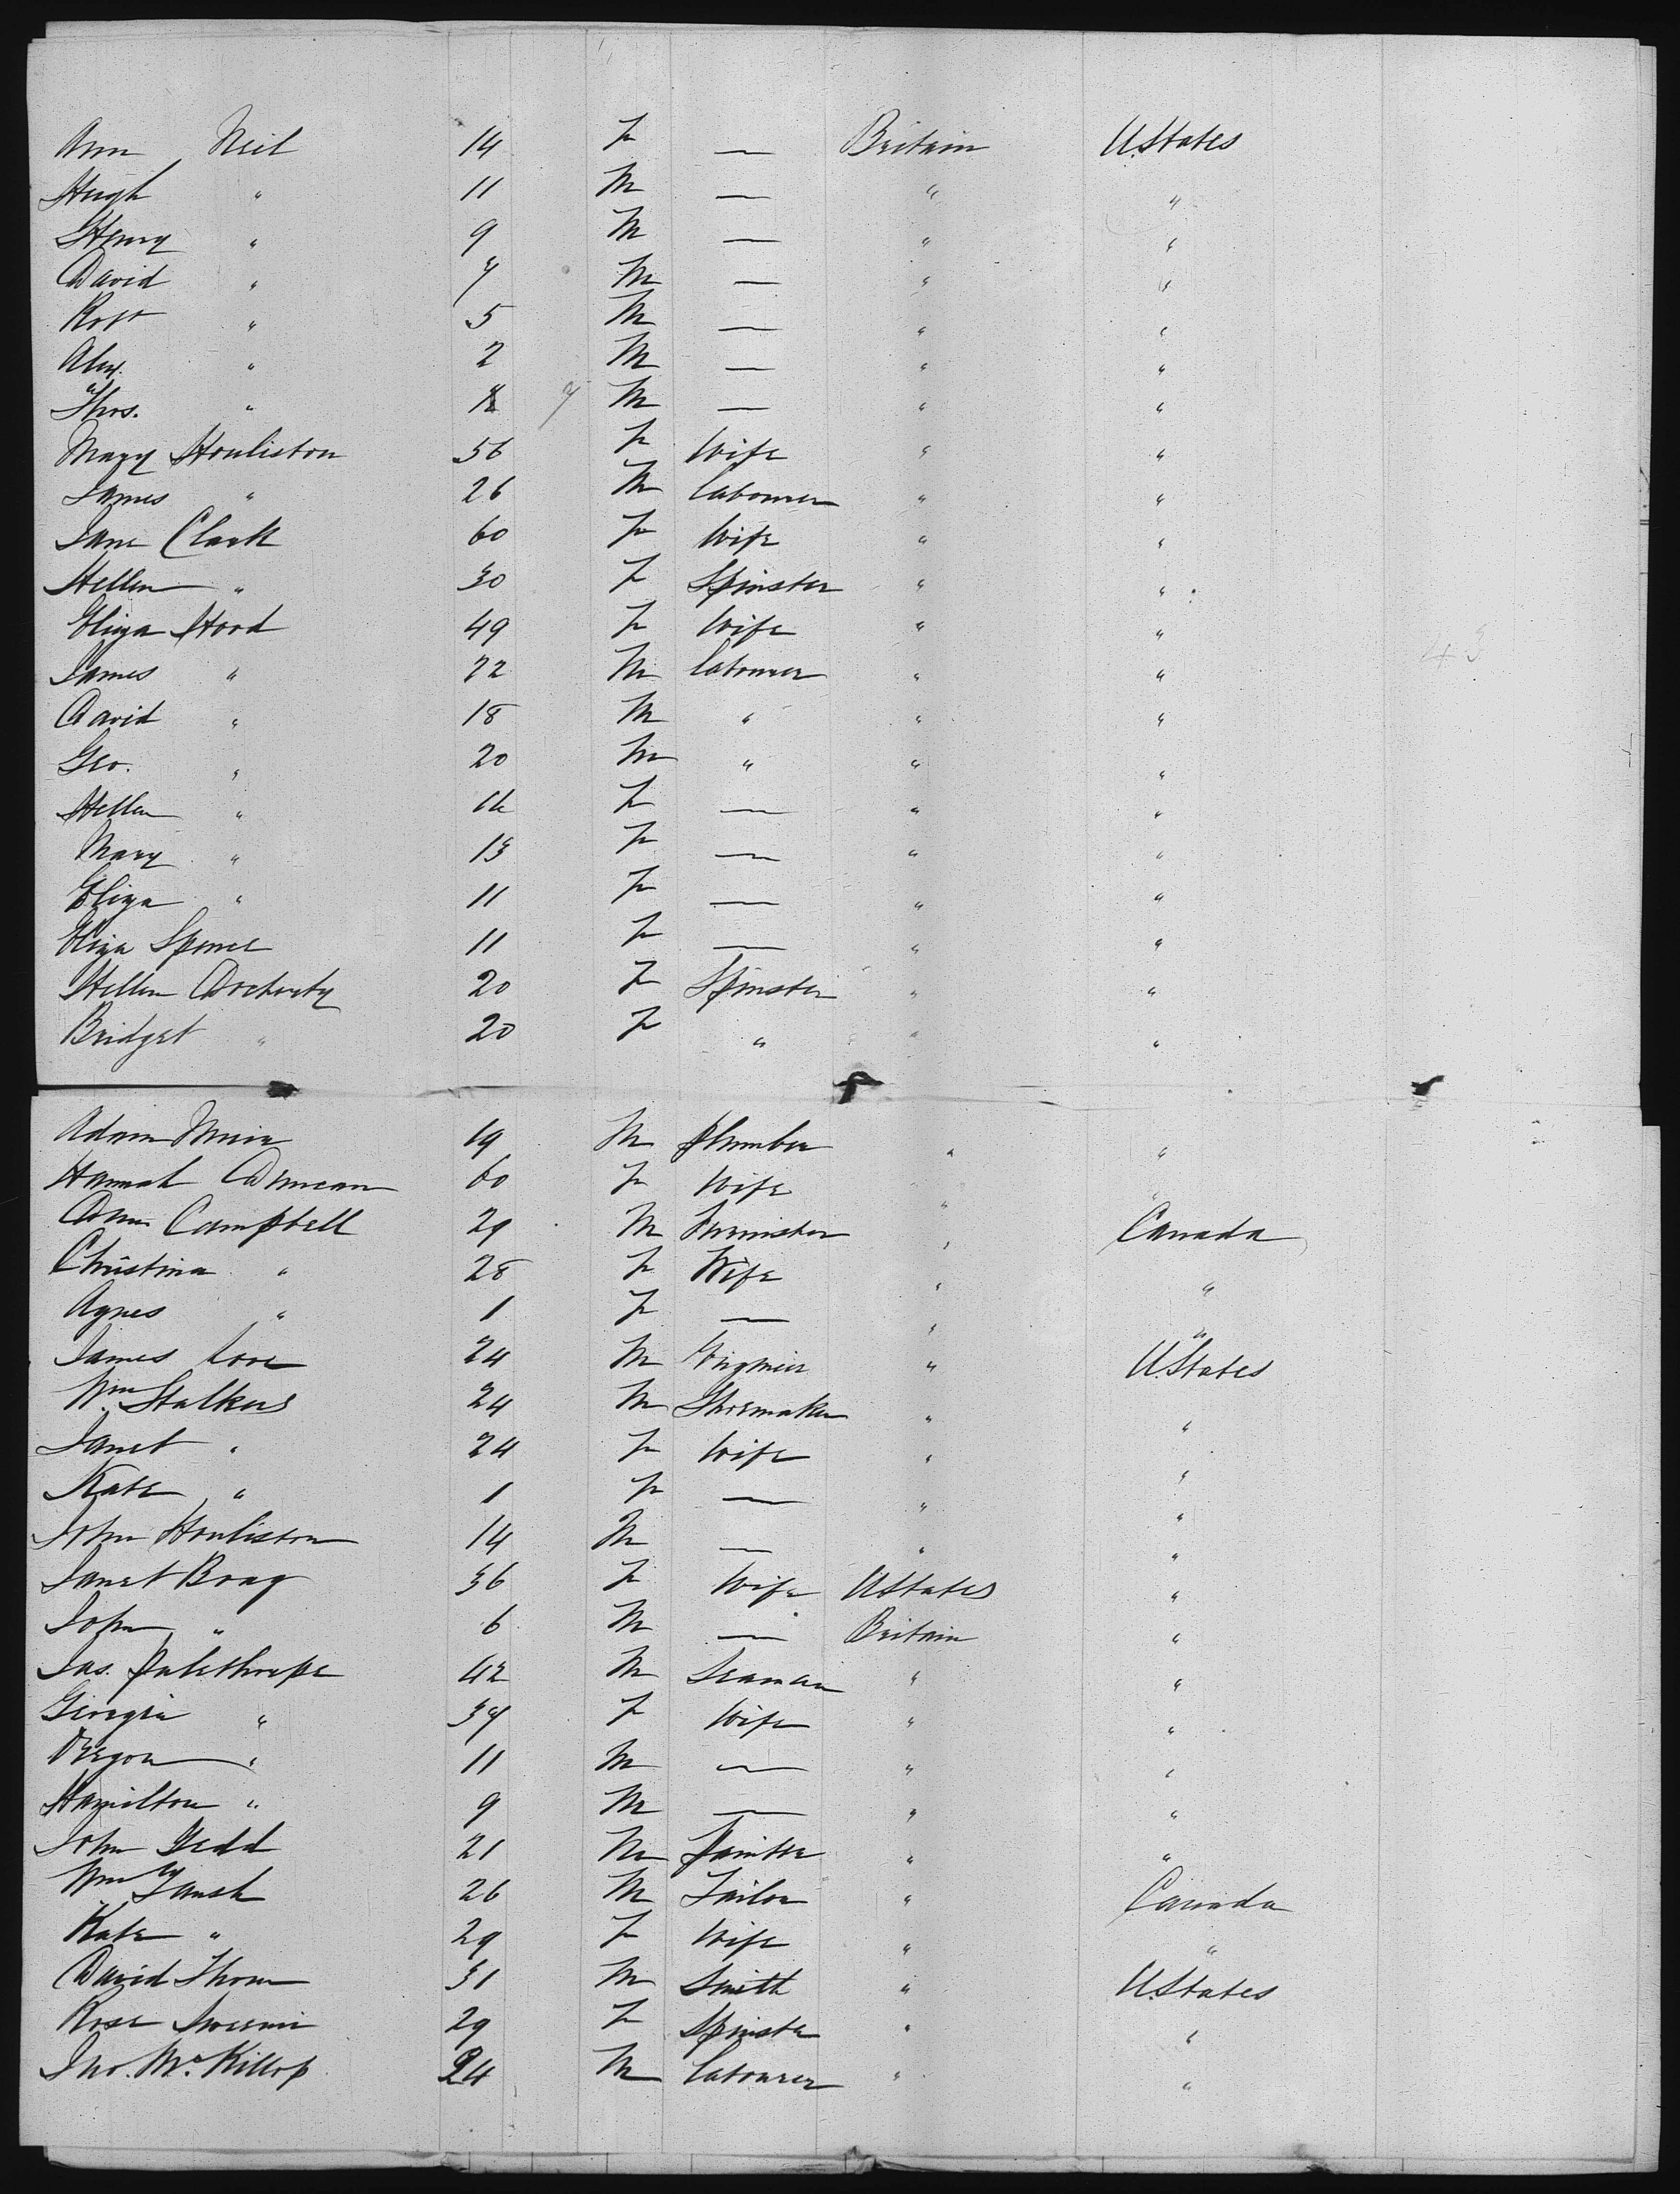 Ann Neil 14 F — Britain U.States
Hugh " 11 M — " "
Henry " 9 M — " "
David " 7 M — " "
Robt " 5 M — " "
Alex. " 2 M — " "
Thos. " M — " "
Mary Houliston 56 F Wife " "
James " 26 M Labourer " "
Jane Clark 60 F Wife " "
Hellen " 30 F Spinster " "
Eliza Hood 49 F Wife " "
James " 22 M Labourer " "
David " 18 M " " "
Geo. " 20 M " " "
Hellen " F — " "
Mary " 13 F — " "
Eliza " 11 F — " "
Eliza Spence 11 F — " "
Hellen Docherty 20 F Spinster " "
Bridget " 20 F " " "
Adam Muir 19 M Plumber " "
Hannah Duncan 60 F Wife " "
Campbell 29 M " Canada
Christina " 28 F Wife " "
Agnes " 1 F — " "
James Love 24 M Engineer " U.States
Wm Stalkers 24 M Shoemaker " "
Janet " 24 F Wife " "
Kate " 1 F — " "
John Houliston 14 M — " "
Janet Bray 36 F Wife UStates "
John " 6 M — Britain "
Jas. Palethorpe 42 M Seaman " "
Georgia " 37 F Wife " "
Oregon " 11 M — " "
Hamilton " 9 M — " "
John Gedd 21 M Painter " "
Wm 26 M Tailor " Canada
Kate " 29 F Wife " "
David Thom 31 M Smith " U.States
Rose 29 F Spinster " "
Jno. McKillop 24 M Labourer " "